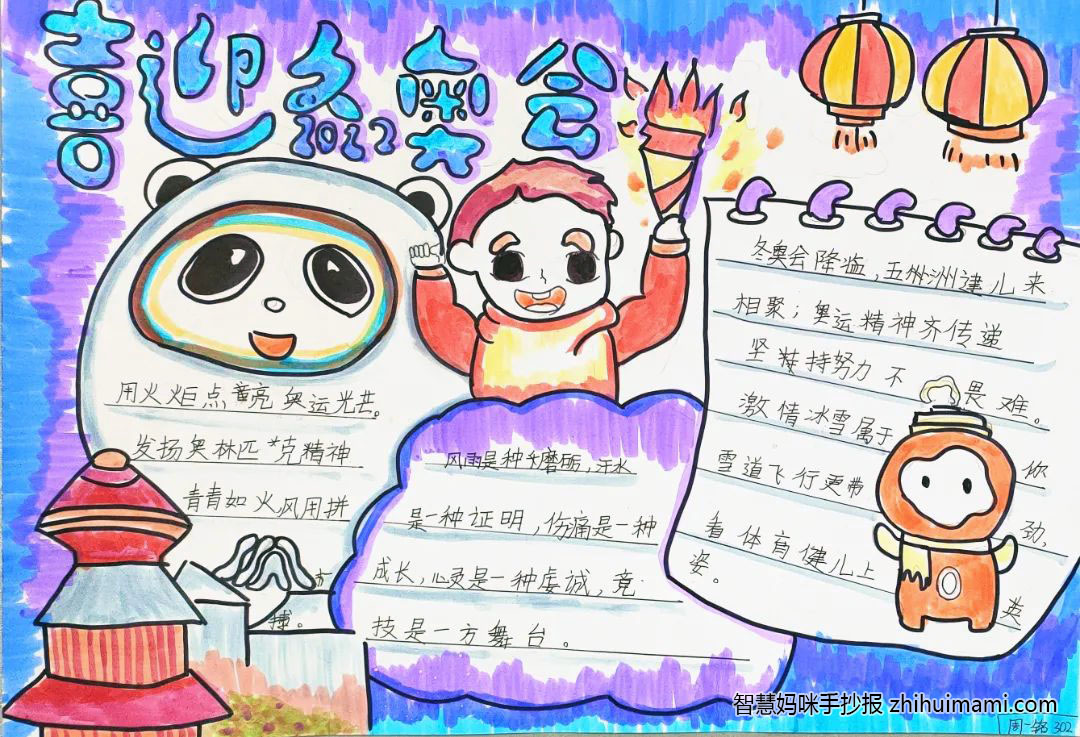 喜迎冬奥会
2022
用火炬点亮奥运光芒。
发扬奥林匹克精神
青青如火风用拼
搏。
风雨是种磨砺,汗水
是一种证明,伤痛是一种
成长,心灵是一种虔诚,竞
技是一方舞台。
冬奥会降临,五州洲健儿来
相聚;奥运精神齐传递
坚持努力不畏难。
激情冰雪属于你
雪道飞行更带劲,
看体育健儿上类
姿。
智慧妈咪手抄报 zhihuimami.com
周一铭 302